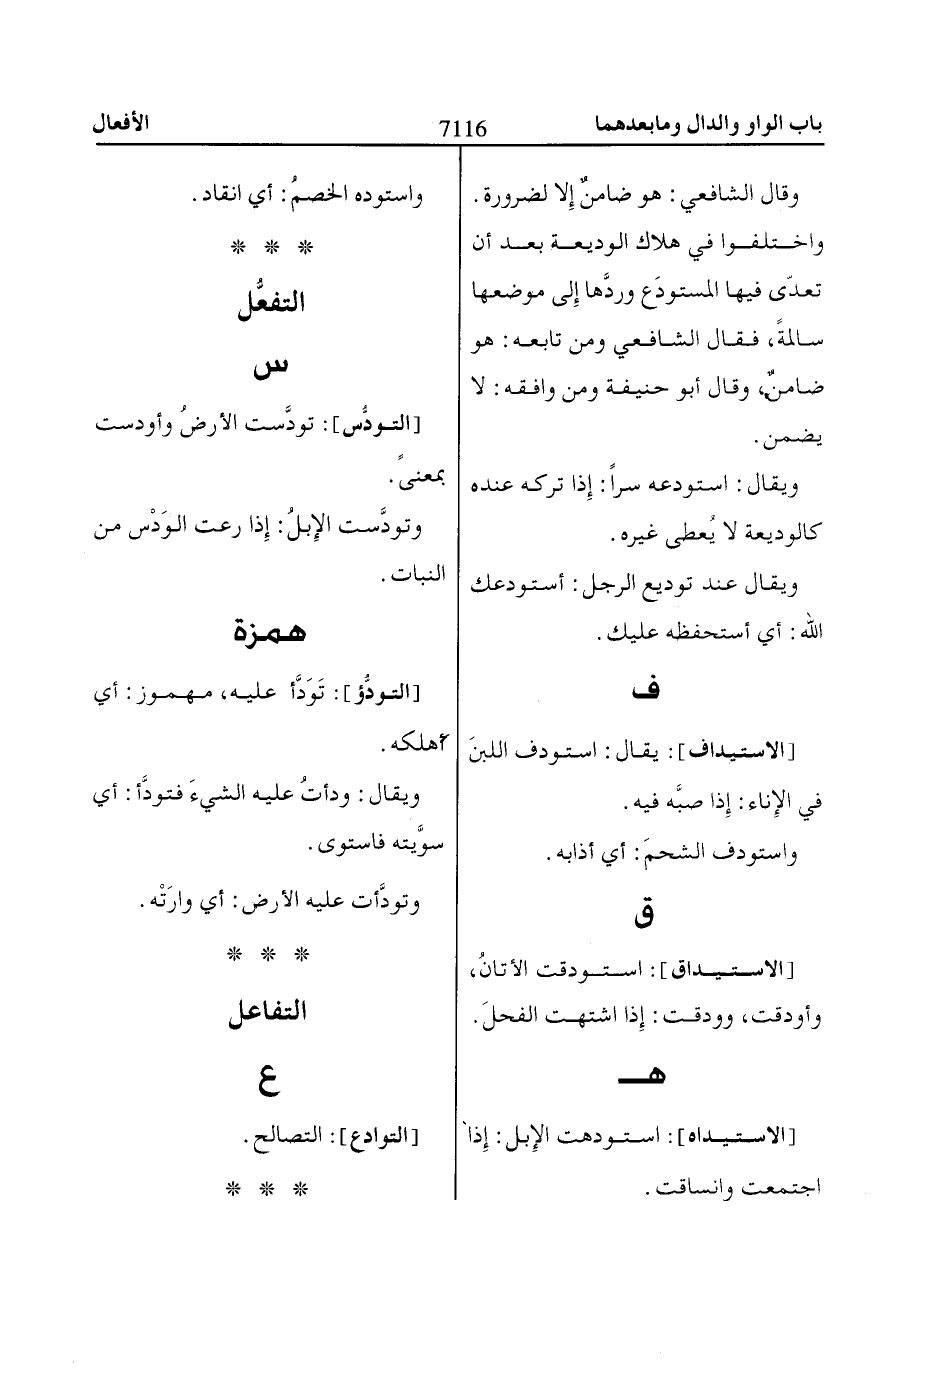 باب الواو والدال ومابعدهما
7116
الأفعال
وقال الشافعي: هو ضامنٌ إلا لضرورة.
واختلفوا في هلاك الوديعة بعد أن
تعدّى فيها المستودَع وردَّها إلى موضعها
سالمةً، فقال الشافعي ومن تابعه: هو
ضامنٌ، وقال أبو حنيفة ومن وافقه: لا
يضمن.
ويقال: استودعه سراً: إذا تركه عنده
كالوديعة لا يُعطى غيره.
ويقال عند توديع الرجل: أستودعك
الله: أي أستحفظه عليك.
ف
[الاستيداف]: يقال: استودف اللبنَ
في الإناء: إذا صبَّه فيه.
واستودف الشحمَ: أي أذابه.
ق
[الاستيداق]: استودقت الأتانُ،
وأودقت، وودقت: إذا اشتهت الفحلَ.
هـ
[الاستيداه]: استودهت الإبل: إذا
اجتمعت وانساقت.
واستوده الخصمُ: أي انقاد.
* * *
التفعُّل
س
[التودُّس]: تودَّست الأرضُ وأودست
بمعنىً.
وتودَّست الإبلُ: إذا رعت الوَدْس من
النبات.
همزة
[التودُّؤ]: تَوَدَّأ عليه، مهموز: أي
أهلكه.
ويقال: ودأتُ عليه الشيءَ فتودَّأ: أي
سوَّيته فاستوى.
وتودَّأت عليه الأرض: أي وارَتْه.
* * *
التفاعل
ع
[التوادع]: التصالح.
* * *